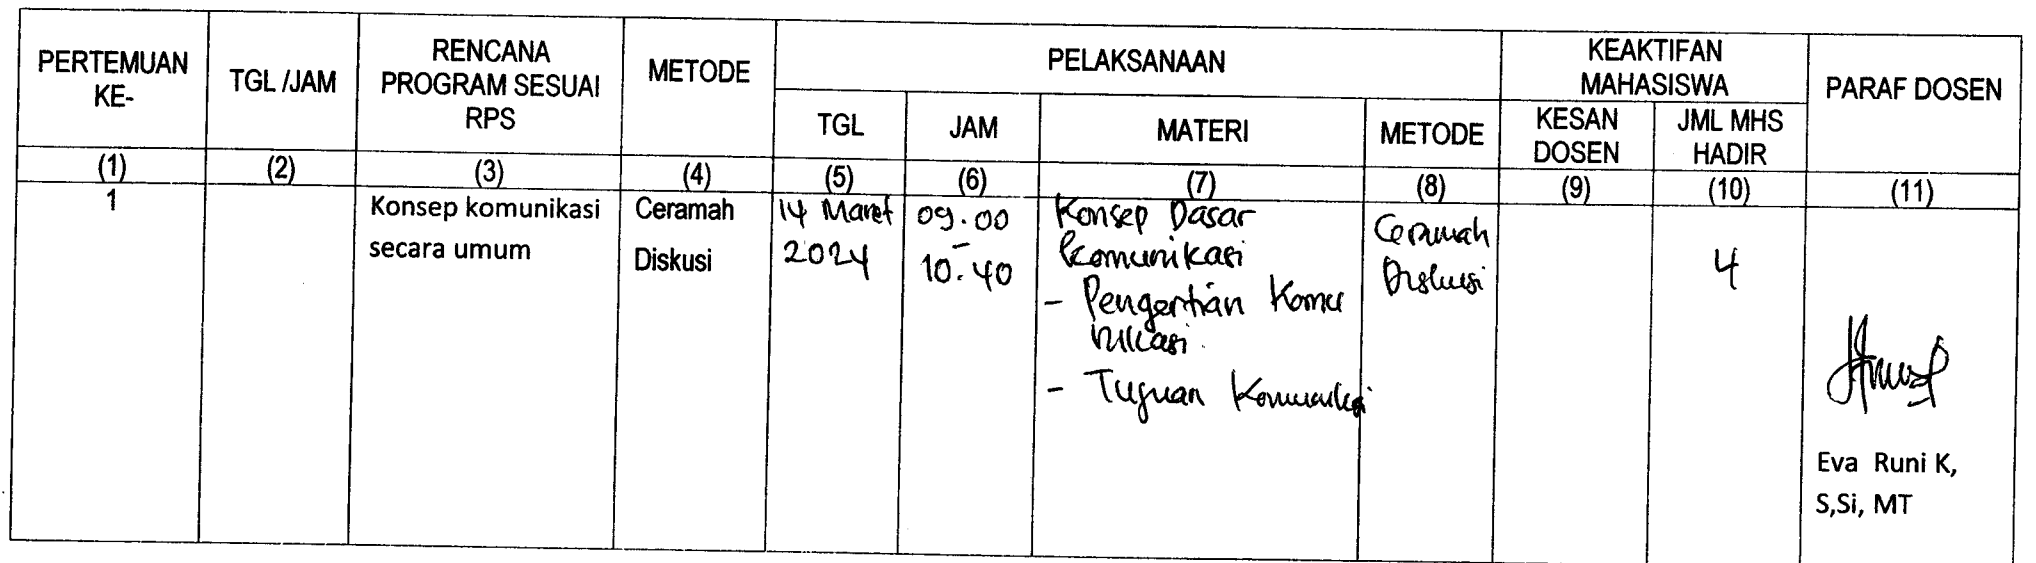 PERTEMUAN KE-
TGL /JAM
RENCANA PROGRAM SESUAI RPS
METODE
PELAKSANAAN
KEAKTIFAN MAHASISWA
PARAF DOSEN
TGL
JAM
MATERI
METODE
KESAN DOSEN
JML MHS HADIR
(1)
(2)
(3)
(4)
(5)
(6)
(7)
(8)
(9)
(10)
(11)
1
Konsep komunikasi
secara umum
Ceramah
Diskusi
14 Maret
2024
09.00
-
10.40
Konsep Dasar
Komunikasi
- Pengertian Komu
nikasi.
- Tujuan Komunikasi
Ceramah
Diskusi
4
Eva Runi K,
S,Si, MT